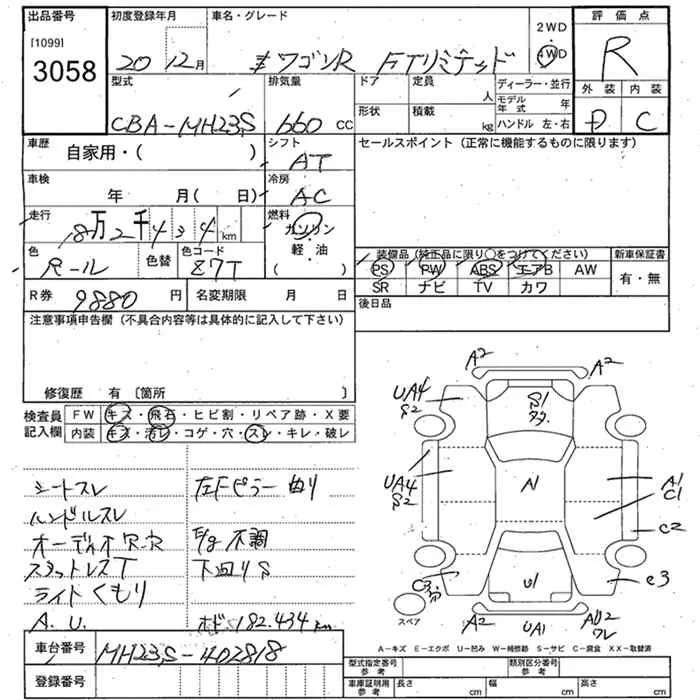 出品番号
[1099]
3058
初度登録年月
20 12月
車名・グレード
ワゴンR FTリミテッド
2WD
・
4WD
評価点
R
外装 内装
D C
型式
CBA-MH23S
排気量
660 CC
ドア
定員
人
形状
積載
kg
ディーラー・並行
モデル年式 年
ハンドル 左・右
車歴
自家用・( )
シフト
AT
車検
年 月( 日)
冷房
AC
走行
18万2千434km
燃料
ガソリン
・
軽・油
( )
色
パール
色替
色コード
Z7T
R券 9880円
名変期限 月 日
セールスポイント (正常に機能するものに限ります)
装備品 (純正品に限り○をつけてください)
PS PW ABS エアB AW
SR ナビ TV カワ
新車保証書
有・無
後日品
注意事項申告欄 (不具合内容等は具体的に記入して下さい)
修復歴 有 〔箇所 〕
検査員記入欄
FW キズ・飛石・ヒビ割・リペア跡・X要
内装 キズ・汚レ・コゲ・穴・スレ・キレ・破レ
シートスレ
ハンドルスレ
オーディオ欠
スタットレスT
ライトくもり
A.U.
左Fピラー曲り
E/g 不調
下回りS
メーター 182.434km
A2 A2
UA4
S2
S1
A1
UA4
S2
A1
C1
C2
C3
U1
C3
A2
UA1
スペア
A−キズ E−エクボ U−凹み W−補修跡 S−サビ C−腐食 XX−取替済
車台番号
MH23S-402818
登録番号
型式指定番号
参考
類別区分番号
参考
車庫証明用
参考
長さ cm
幅 cm
高さ cm